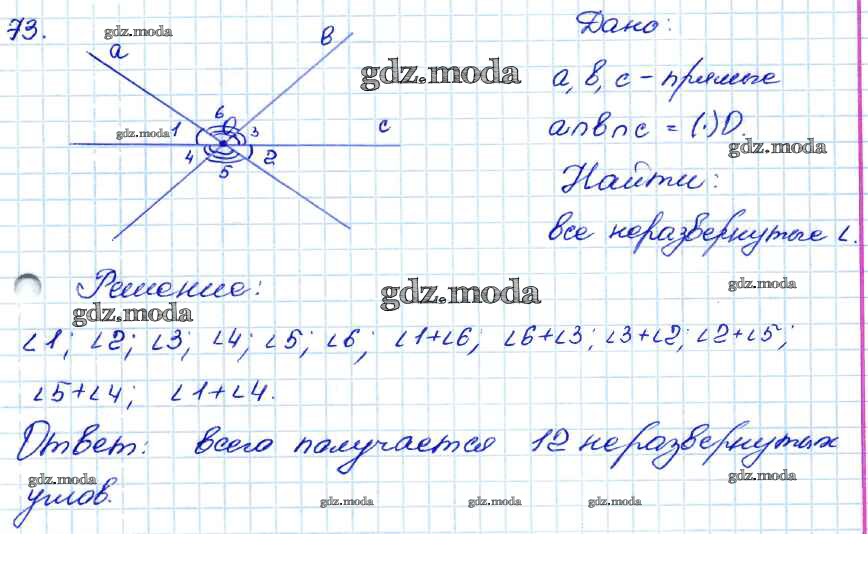 73.
gdz.moda
a
b
Дано:
gdz.moda
a, b, c - прямые
6
O
gdz.moda
1
3
c
a∩b∩c = (·)O.
gdz.moda
4
2
5
Найти:
все неразвернутые ∠.
Решение:
gdz.moda
gdz.moda
gdz.moda
∠1; ∠2; ∠3; ∠4; ∠5; ∠6; ∠1+∠6; ∠6+∠3; ∠3+∠2; ∠2+∠5;
∠5+∠4; ∠1+∠4.
Ответ: всего получается 12 неразвернутых
gdz.moda
gdz.moda
углов.
gdz.moda
gdz.moda
gdz.moda